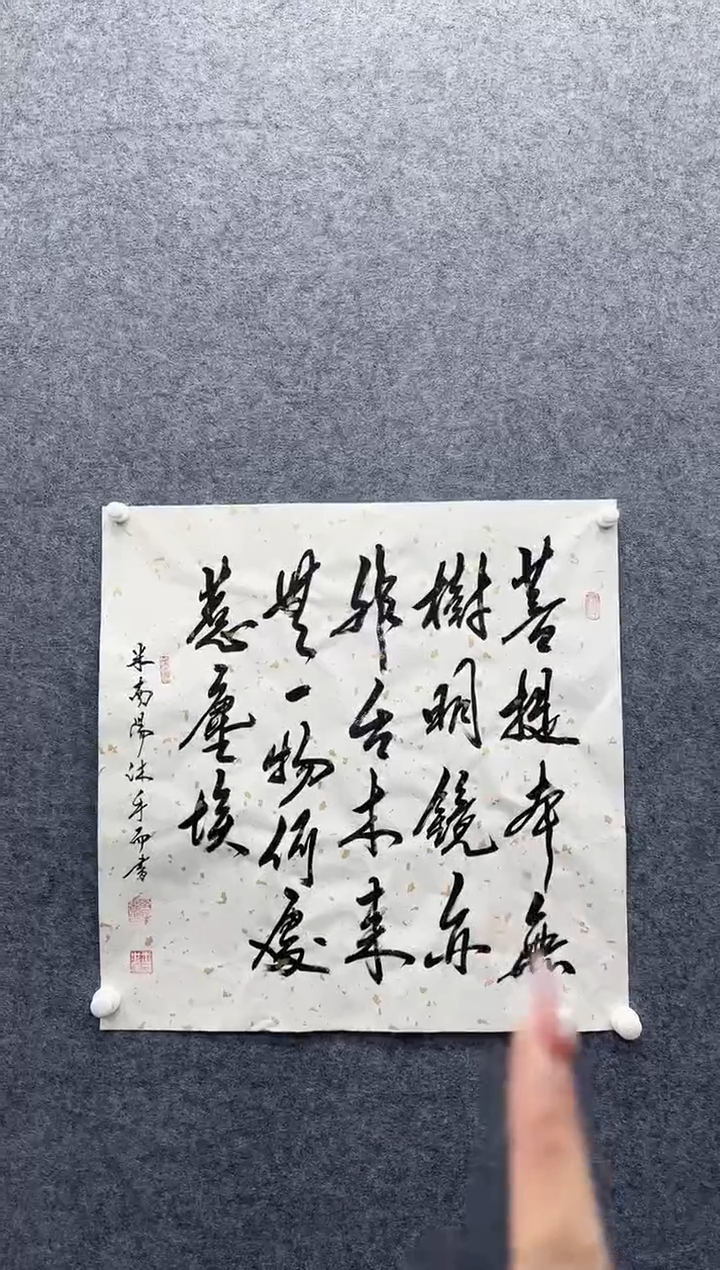 菩提本無
樹明鏡亦
非台本来
無一物何處
惹塵埃
米南陽沐手而書